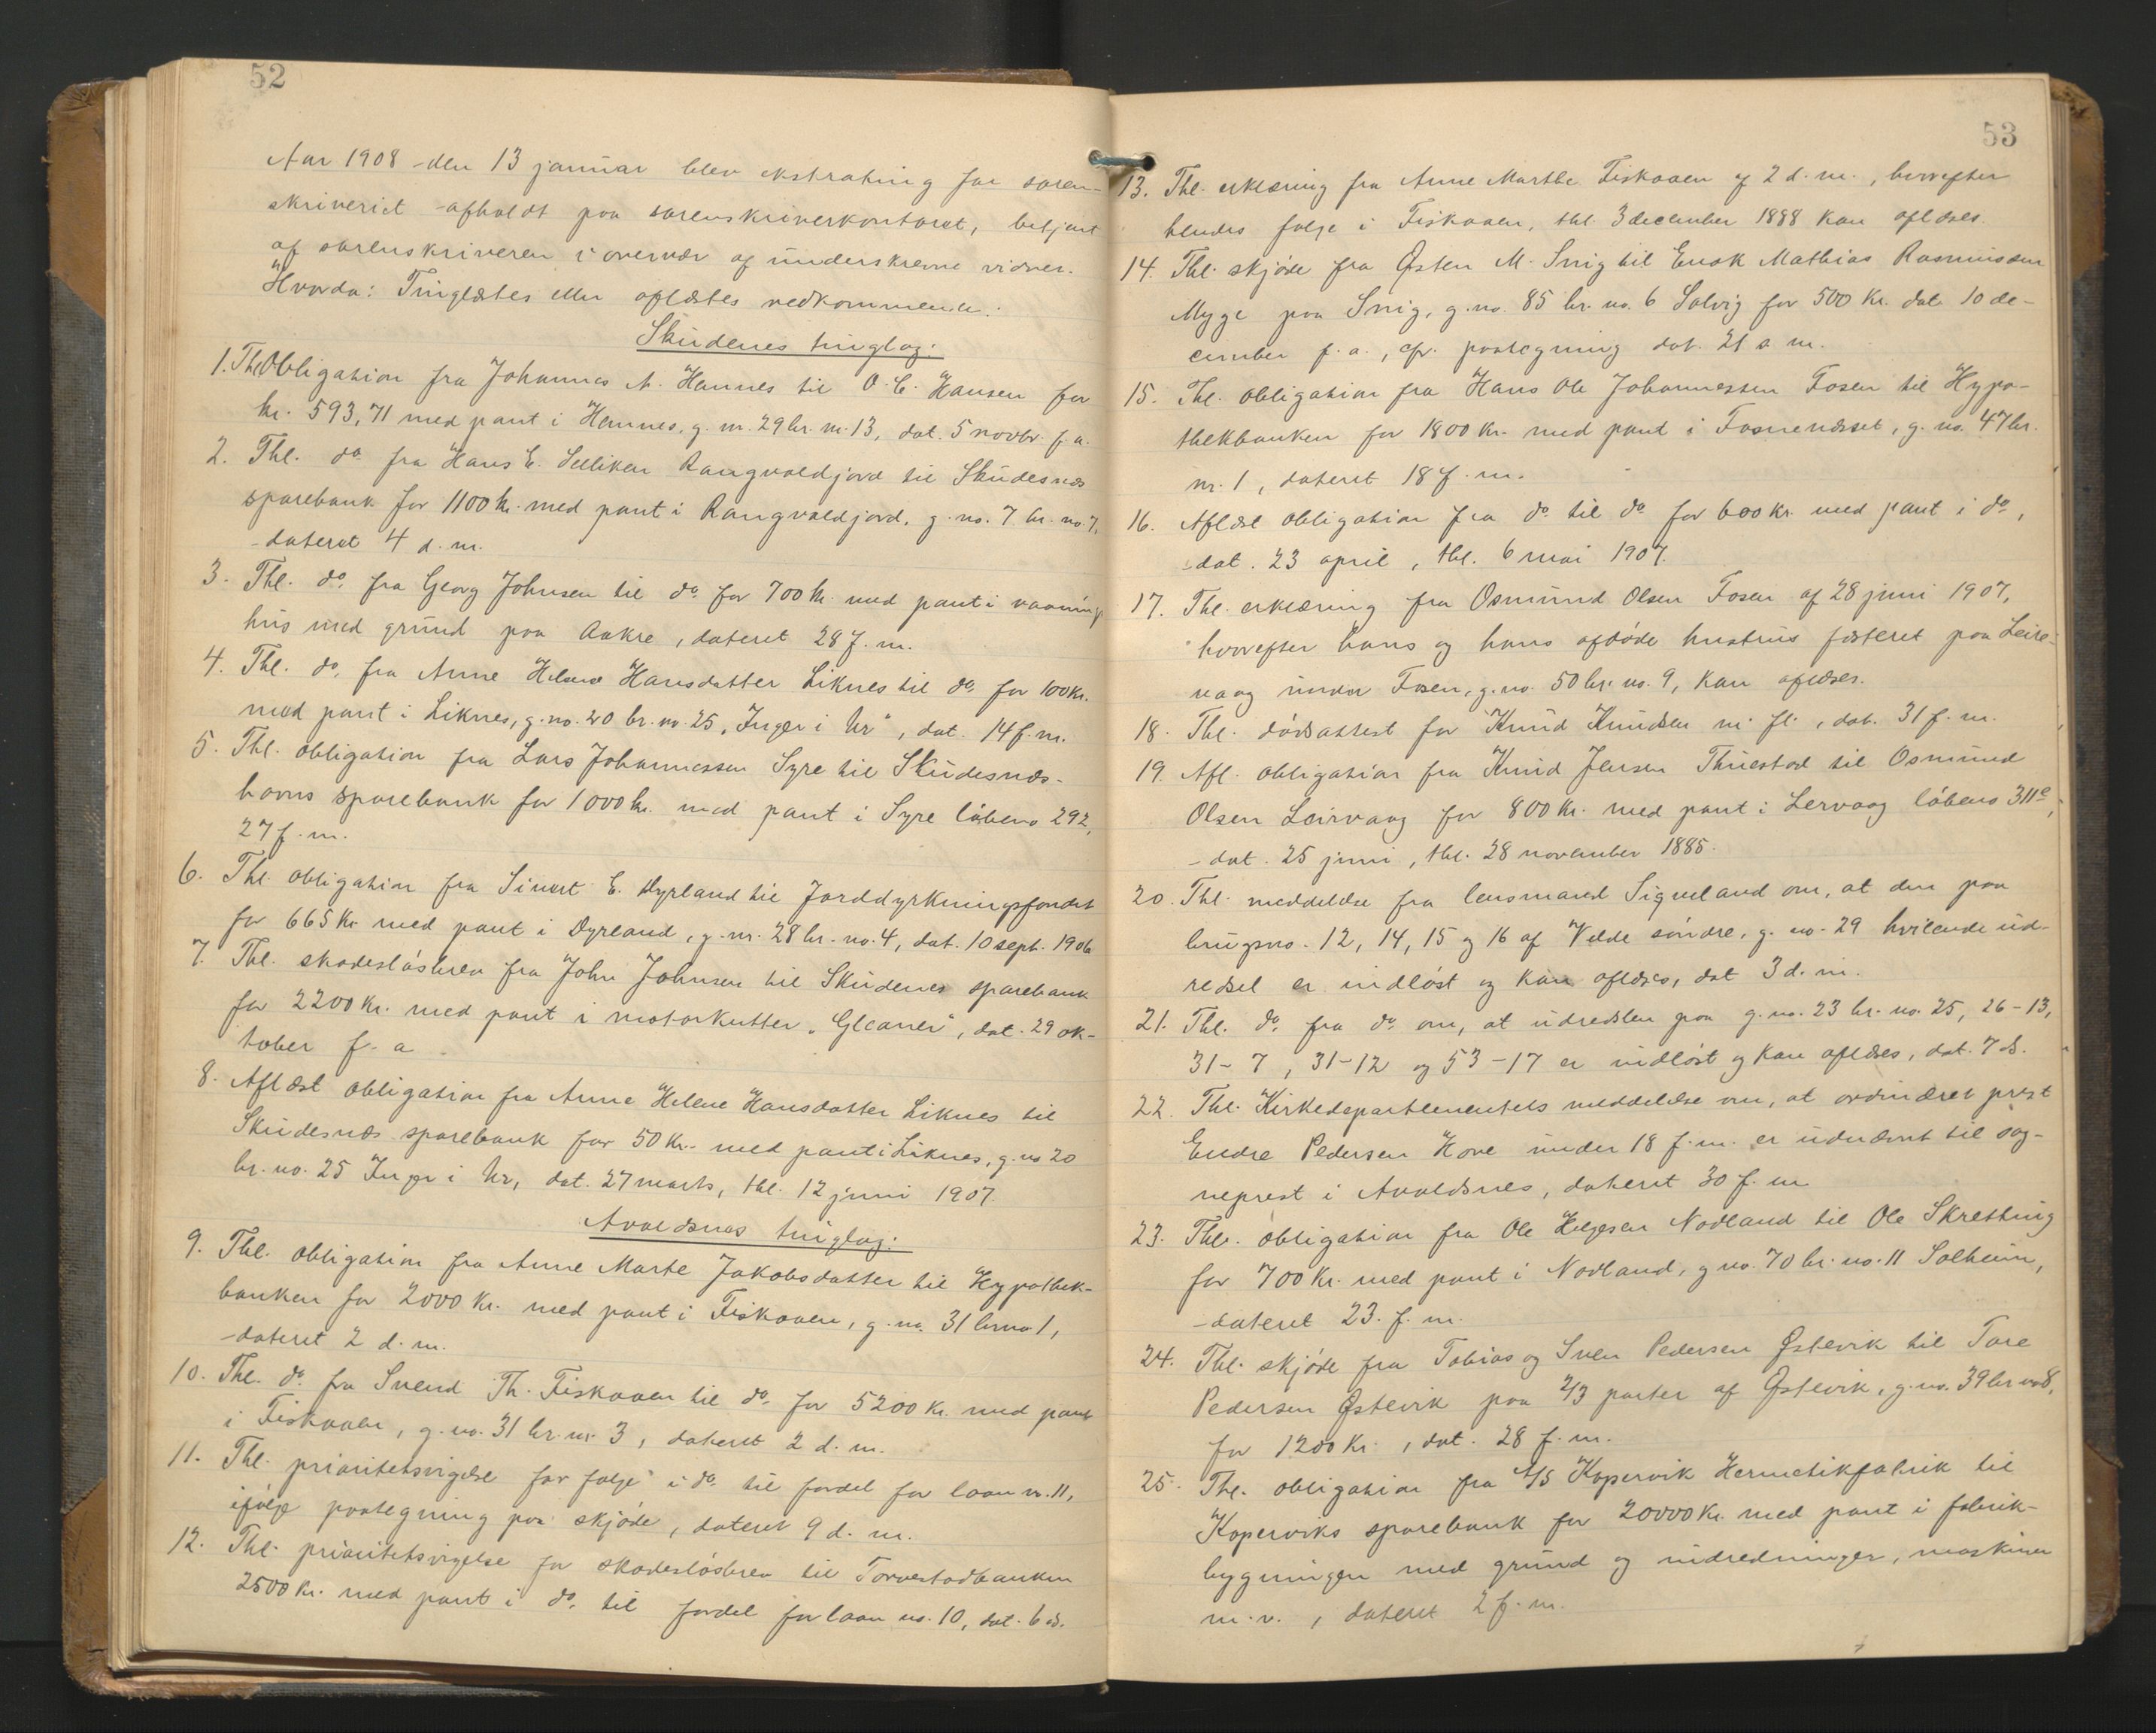 52
Aar 1908 den 13 januar blev ekstrating for soren-
skriveriet afholdt paa sorenskriverkontoret, betjent
af sorenskriveren i overvær af underskrevne vidner.
Hvorda: Tinglæstes eller aflæstes vedkommende:
Skudenes tinglag:
1. Thl. Obligation fra Johannes A. Hemnes til O. C. Hansen for
kr. 593,71 med pant i Hemnes, g. nr. 29 br. nr. 13, dat. 5 novbr. f. a.
2. Thl. do fra Hans E. Selliken Rangvaldjord til Skudesnæs
sparebank for 1100 kr. med pant i Rangvaldjord, g. no. 7 br. no. 7,
dateret 4 d. m.
3. Thl. do. fra Georg Johnsen til do. for 700 kr. med pant i vaanings
hus med grund paa Aakre, dateret 28 f. m.
4. Thl. do. fra Anne Helene Hansdatter Liknes til do. for 100 kr.
med pant i Liknes, g. no. 20 br. no. 25 „Inger i Ur“, dat. 14 f. m.
5. Thl. obligation fra Lars Johannessen Syre til Skudesnæs-
havns sparebank for 1000 kr. med pant i Syre løbeno 292,
27 f. m.
6. Thl. obligation fra Sivert E. Dyrland til Jorddyrkningsfondet
for 665 kr med pant i Dyrland, g. nr. 28 br. no. 4, dat. 10 sept. 1906
7. Thl. skadesløsbrev fra John Johnsen til Skudenes sparebank
for 2200 kr. med pant i motorkutter „Gleaner“, dat. 29 ok-
tober f. a.
8. Aflæst obligation fra Anne Helene Hansdatter Liknes til
Skudesnæs sparebank for 50 kr. med pant i Liknes, g. no 20
br. no. 25 Inger i Ur, dat. 27 marts, thl. 12 juni 1907.
Avaldsnes tinglag:
9. Thl. obligation fra Anne Marte Jakobsdatter til Hypothek-
banken for 2000 kr. med pant i Fiskaaen, g. no. 31 brno 1,
dateret 2 d. m.
10. Thl. do. fra Svend Th. Fiskaaen til do. for 5200 kr. med pant
i Fiskaaen, g. no. 31 br. nr. 3, dateret 2 d. m.
11. Thl. prioritetsvigelse for følge i do. til fordel for laan n. 11,
ifølge paategning paa skjøde, dateret 9 d. m.
12. Thl. prioritetsvigelse for skadesløsbrev til Torvestadbanken
2500 kr. med pant i do. til fordel for laan no. 10, dat. 6 ds.
53
13. Thl. erklæring fra Anne Marthe Fiskaaen af 2 d. m., hvorefter
hendes følge i Fiskaaen, thl. 3 december 1888 kan aflæses.
14. Thl. skjøde fra Østen M. Snig til Enok Mathias Rasmussen
Myge paa Snig, g. no. 85 br. no. 6 Solvig for 500 kr. dat. 10 de-
cember f. a., cfr. paategning dat. 21 s. m.
15. Thl. obligation fra Hans Ole Johannessen Fosen til Hypo-
thekbanken for 1800 kr. med pant i Fosenesset, g. no. 47 br.
nr. 1, dateret 18 f. m.
16. Aflæst obligation fra do. til do. for 600 kr. med pant i do.,
dat. 23 april, thl. 6 mai 1907.
17. Thl. erklæring fra Osmund Olsen Fosen af 28 juni 1907,
hvorefter hans og hans afdøde hustrus fæsteret paa Leire-
vaag under Fosen, g. no. 50 br. no. 9, kan aflæses.
18. Thl. dødsattest for Knud Knudsen m. fl., dat. 31 f. m.
19. Afl. obligation fra Knud Jensen Thuestad til Osmund
Olsen Leirvaag for 800 kr. med pant i Lervaag løbeno 311c,
dat. 25 juni, thl. 28 november 1885.
20. Thl. meddelelse fra lensmand Sigveland om, at den paa
brugsno. 12, 14, 15 og 16 af Velde søndre, g. no. 29 hvilende ud-
redsel er indløst og kan aflæses, dat 3 d. m.
21. Thl. do. fra do. om, at udredslen paa g. no. 23 br. no. 25, 26-13,
31-7, 31-12 og 53-17 er indløst og kan aflæses, dat. 7 ds.
22. Thl. Kirkedepartementets meddelelse om, at ordineret prest
Endre Pedersen Hove under 18 f. m. er udnævnt til sog-
neprest i Avaldsnes, dateret 30 f. m
23. Thl. obligation fra Ole Helgesen Nodland til Ole Skretting
for 700 kr. med pant i Nodland, g. no. 70 br. no. 11 Solheim,
dateret 23. f. m.
24. Thl. skjøde fra Tobias og Sven Pedersen Østevik til Tore
Pedersen Østevik paa 2/3 parter af Østevik, g. no. 39 br no 8,
for 1200 kr., dat. 28 f. m.
25. Thl. obligation fra A/S Kopervik Hermetikfabrik til
Koperviks sparebank for 20000 kr. med pant i fabrik-
bygningen med grund og indredninger, maskiner
m. v., dateret 2 f. m.